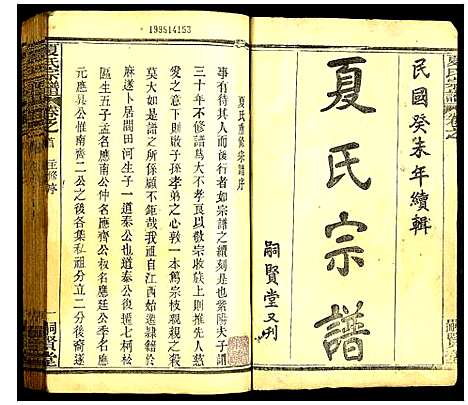 民國癸未年續輯
夏氏宗譜
嗣賢堂又刋
199514153
夏氏重修宗譜序
事有待其人而後行者如宗譜之續刻是也紫陽夫子謂
三十年不修譜為大不孝良以敬宗收族上則推先人慈
愛之意下則啟子孫孝弟之心敦一本篤宗枝親親之殺
莫大如是譜之所係顧不鉅哉我祖自江西始遷隷籍于
麻遂卜居間田河生子一道泰公也道泰公後遷七柯松
區生五子孟名應南公仲名應齊公叔名應廷公季名應
元應具公惟南齊二公之後各集私祖分立二分後奇達
夏氏宗譜
卷之首
重修序
一
嗣賢堂
夏氏宗譜
卷之
嗣賢堂